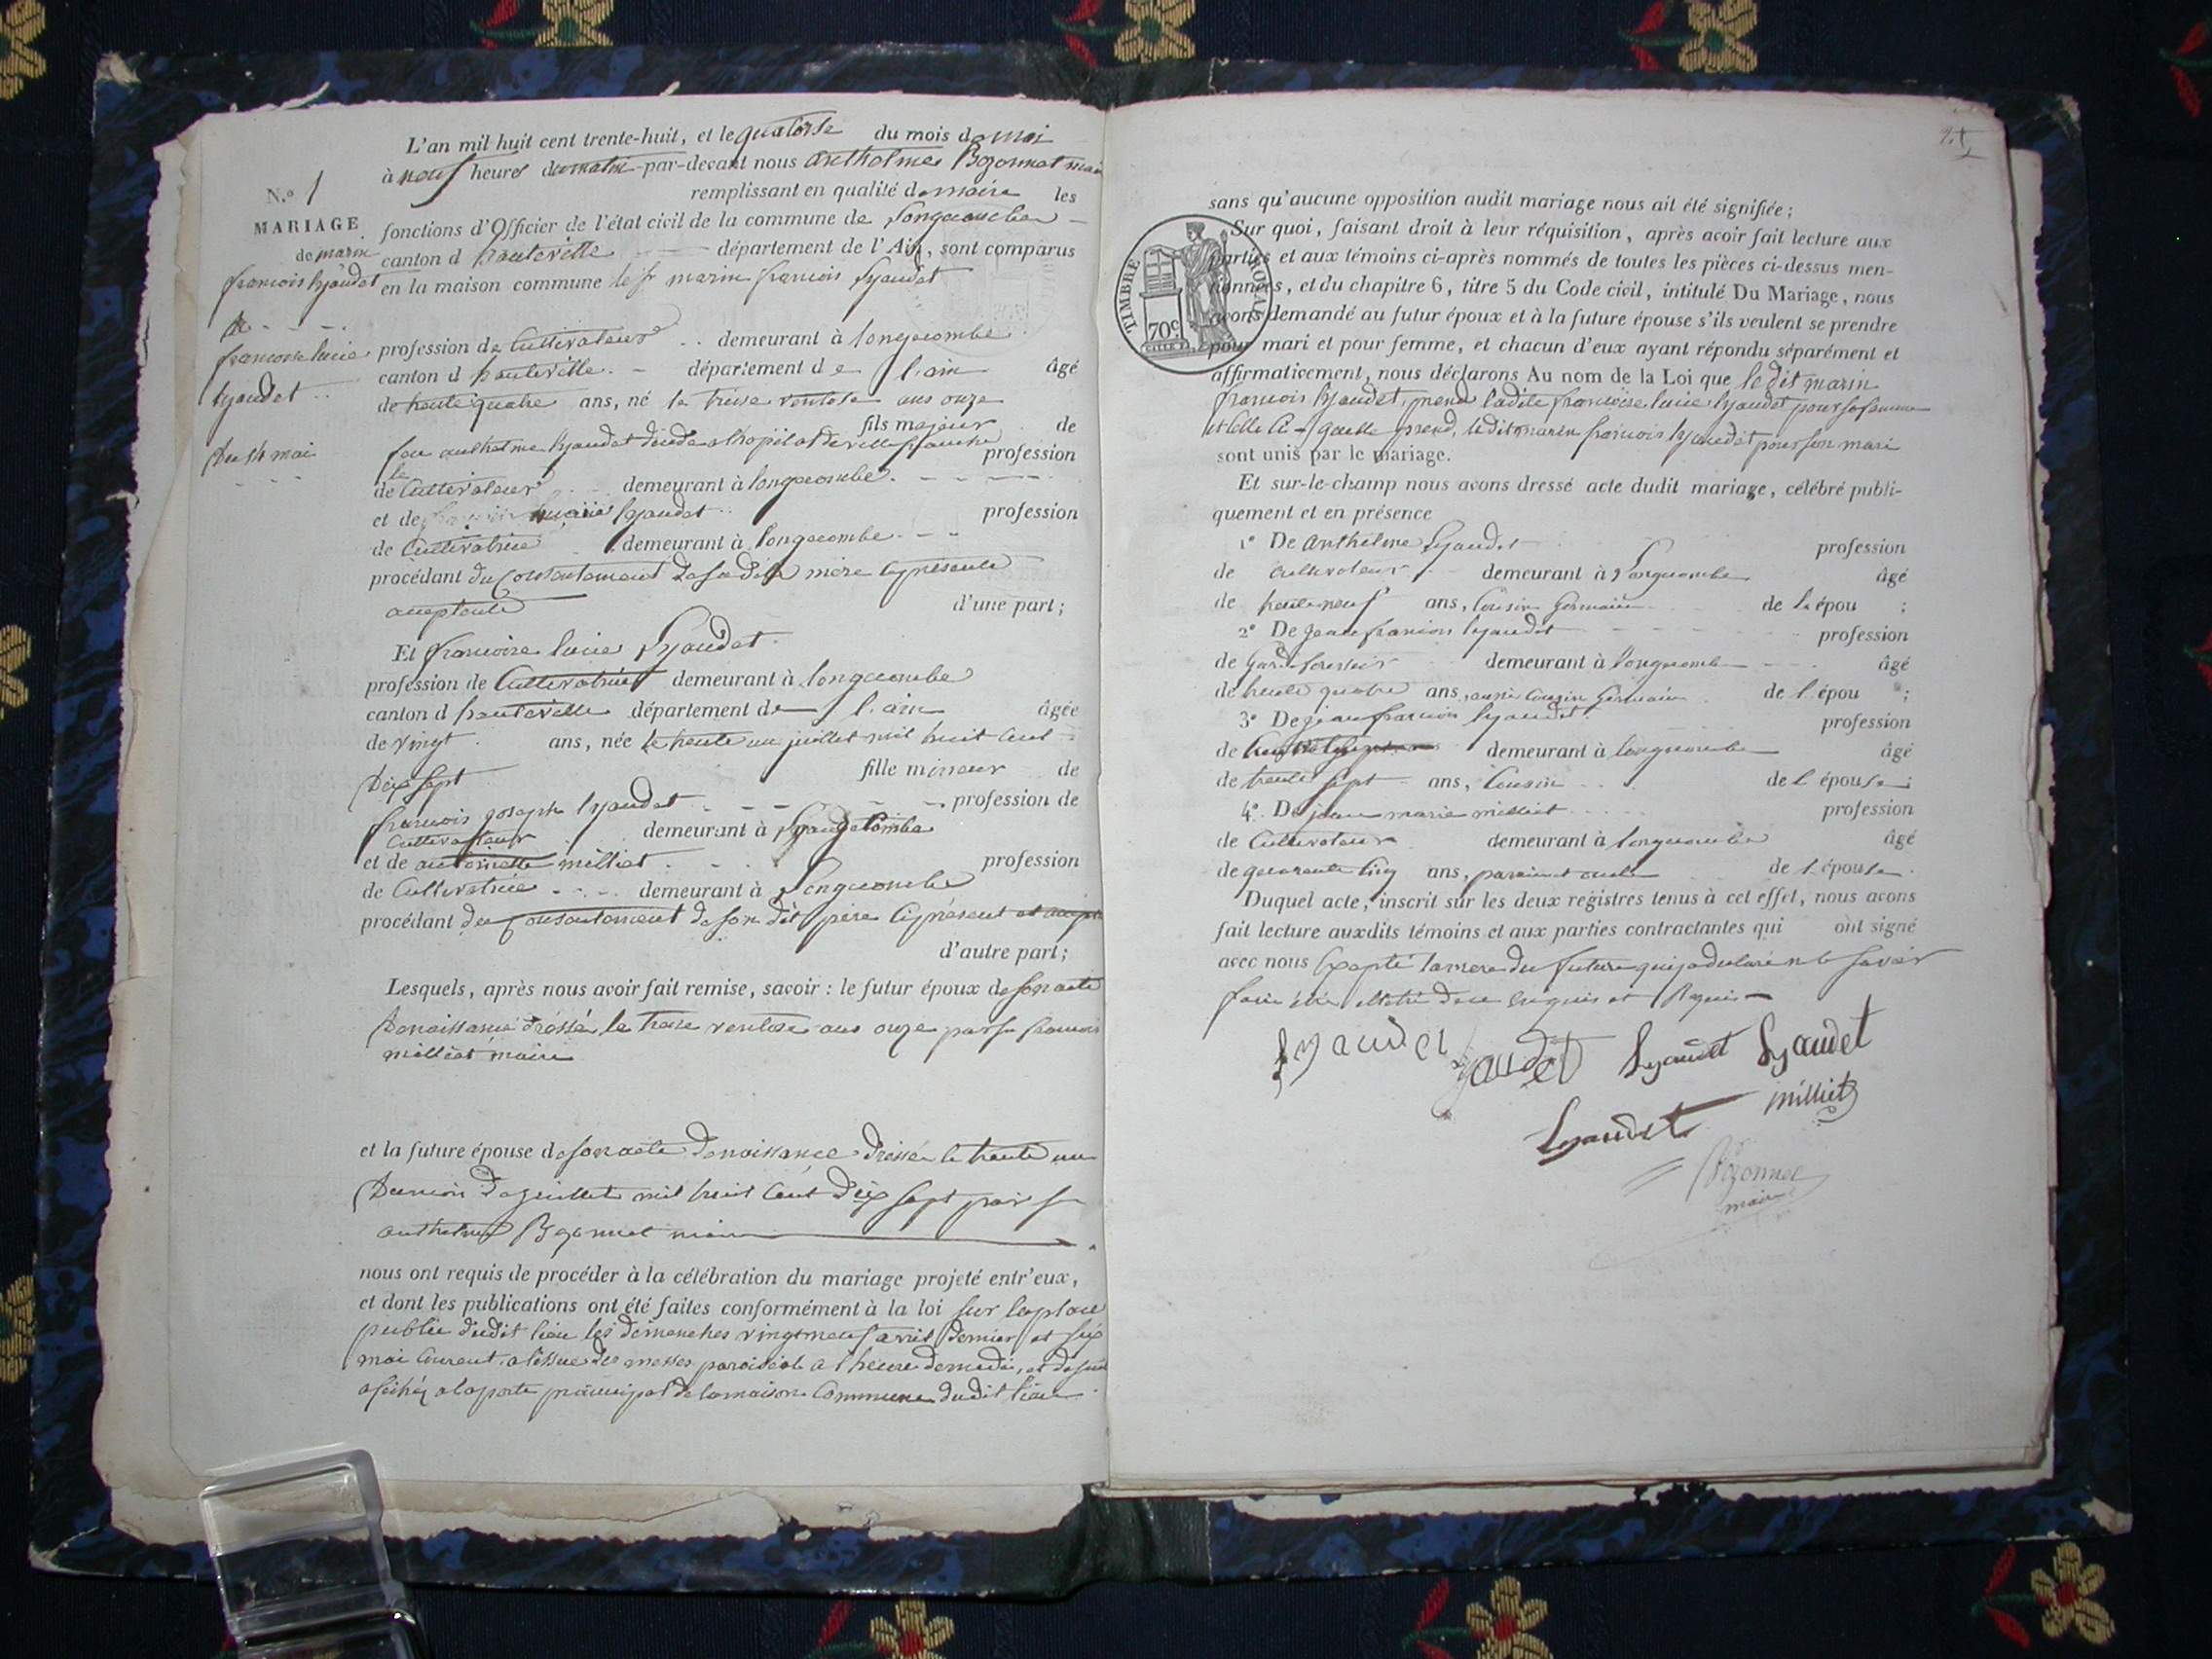 L'an mil huit cent trente-huit, et le quatorse du mois de mai
à neuf heures du matin par-devant nous anthelme Bozonnet maire
remplissant en qualité de maire les
fonctions d'Officier de l'état civil de la commune de Longecombe
canton d hauteville département de l'Ain, sont comparus
en la maison commune le sr marin francois Lyaudet
profession de Cultivateur demeurant à longecombe
canton d hauteville département de l'ain âgé
de trente quatre ans, né le treise ventose ans onze
fils majeur de
feu anthelme lyaudet décédé a lhopital de villefranche profession
de Cultivateur demeurant à longecombe
et de marie lyaudet profession
de Cultivatrice demeurant à longecombe
procédant du Consentement de sa dite mère cy présente
acceptante d'une part;
Et francoise lucie Lyaudet
profession de Cultivatrice demeurant à longecombe
canton d hauteville département de l'ain âgée
de vingt ans, née le trente un juillet mil huit Cent
Dix sept fille mineur de
francois joseph lyaudet profession de
Cultivateur demeurant à
et de antoinette milliet profession
de Cultivatrice demeurant à Longecombe
procédant du Consentement de son dit père Cy présent et accept
d'autre part;
Lesquels, après nous avoir fait remise, savoir : le futur époux de son acte
De naissance dréssé le treise ventose ans onze par sr francois
milliet maire
et la future épouse de son acte De naissance Dréssé le trente un
Du mois De juillet mil huit Cent Dix sept par sr
anthelme Bozonnet maire
nous ont requis de procéder à la célébration du mariage projeté entr'eux,
et dont les publications ont été faites conformément à la loi sur la place
publie dudit lieu les démanches vingt neuf avril dernier et six
mai Courent, a l'issue des messes paroisiale a l'heure de midi, et de suite
afichéz a la porte principal de la maison Commune dudit lieu
N.º 1
MARIAGE
de marin
francois lyaudet
&
francoise lucie
lyaudet
Du 14 mai
sans qu'aucune opposition audit mariage nous ait été signifiée;
Sur quoi, faisant droit à leur réquisition, après avoir fait lecture aux
parties et aux témoins ci-après nommés de toutes les pièces ci-dessus men-
tionnées, et du chapitre 6, titre 5 du Code civil, intitulé Du Mariage, nous
avons demandé au futur époux et à la future épouse s'ils veulent se prendre
pour mari et pour femme, et chacun d'eux ayant répondu séparément et
affirmativement, nous déclarons Au nom de la Loi que le dit marin
francois lyaudet, prend ladite francoise lucie lyaudet pour sa femme
et prend, ledit marin francois lyaudet pour son mari
sont unis par le mariage.
Et sur-le-champ nous avons dressé acte dudit mariage, célébré publi-
quement et en présence
1º De anthelme Lyaudet profession
de cultivateur demeurant à Longecombe âgé
de trente neuf ans, Cousin Germain de l'épou ;
2º De jean francois lyaudet profession
de Garde forestier demeurant à longecombe âgé
de trente quatre ans, aussi Cousin Germain de l'épou ;
3º De jean francois lyaudet profession
de demeurant à longecombe âgé
de trente sept ans, Cousin de l'épouse;
4º. De jean marie milliet profession
de Cultivateur demeurant à longecombe âgé
de quarente Cinq ans, parain et oncle de l'épouse.
Duquel acte, inscrit sur les deux registres tenus à cet effet, nous avons
fait lecture auxdits témoins et aux parties contractantes qui ont signé
avec nous Exepté la mère du future qui a déclaré ne le savoir
faire de ce enquis et Requis
TIMBRE ROYAL
70c
Lyaudet Lyaudet Lyaudet Lyaudet
Lyaudet milliet
Bozonnet
maire